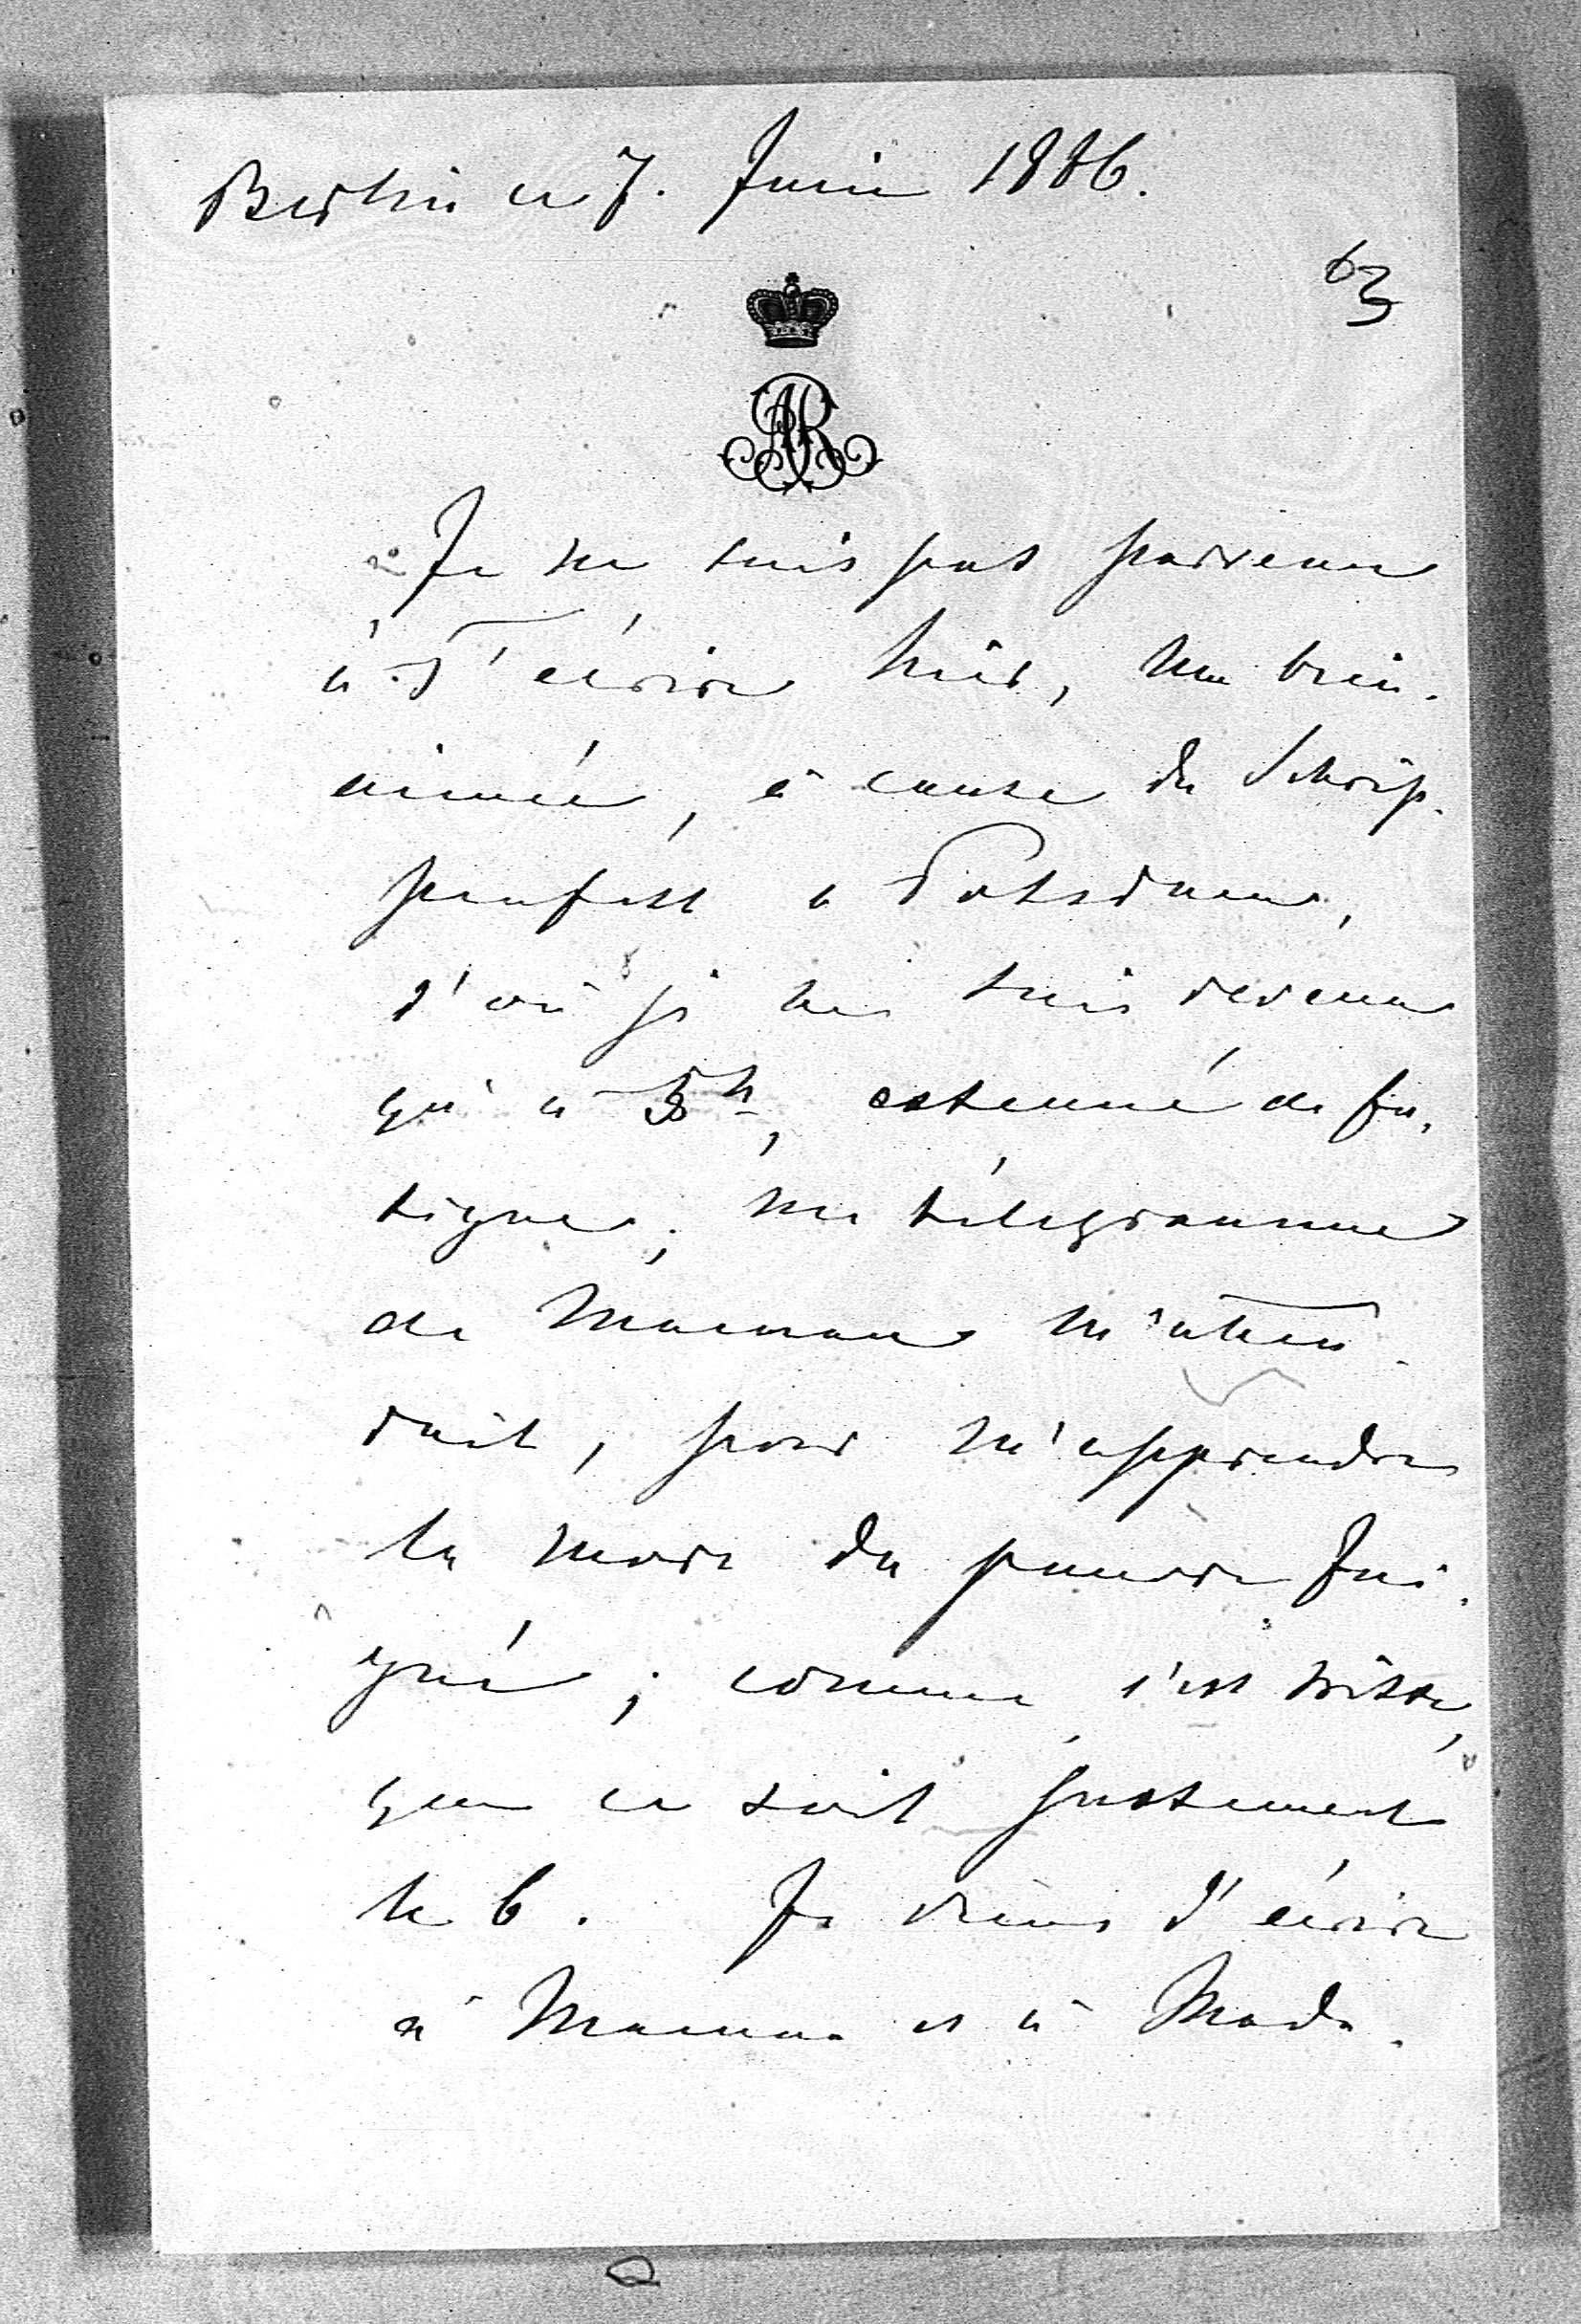 Berlin ce 7. Juin 1886.
63
AR
Je ne suis pas parvenu
à T'écrire hier, ma bien-
aimée, à cause du Schrip-
penfest à Potsdam,
d'où je ne suis revenu
qu'à 5h, exténué de fa-
tigue; un télégramme
de Maman m'atten-
dait, pour m'apprendre
la mort du pauvre
; comme c'est triste,
que ce soit justement
le 6. Je viens d'écrire
à Maman et à Mada-